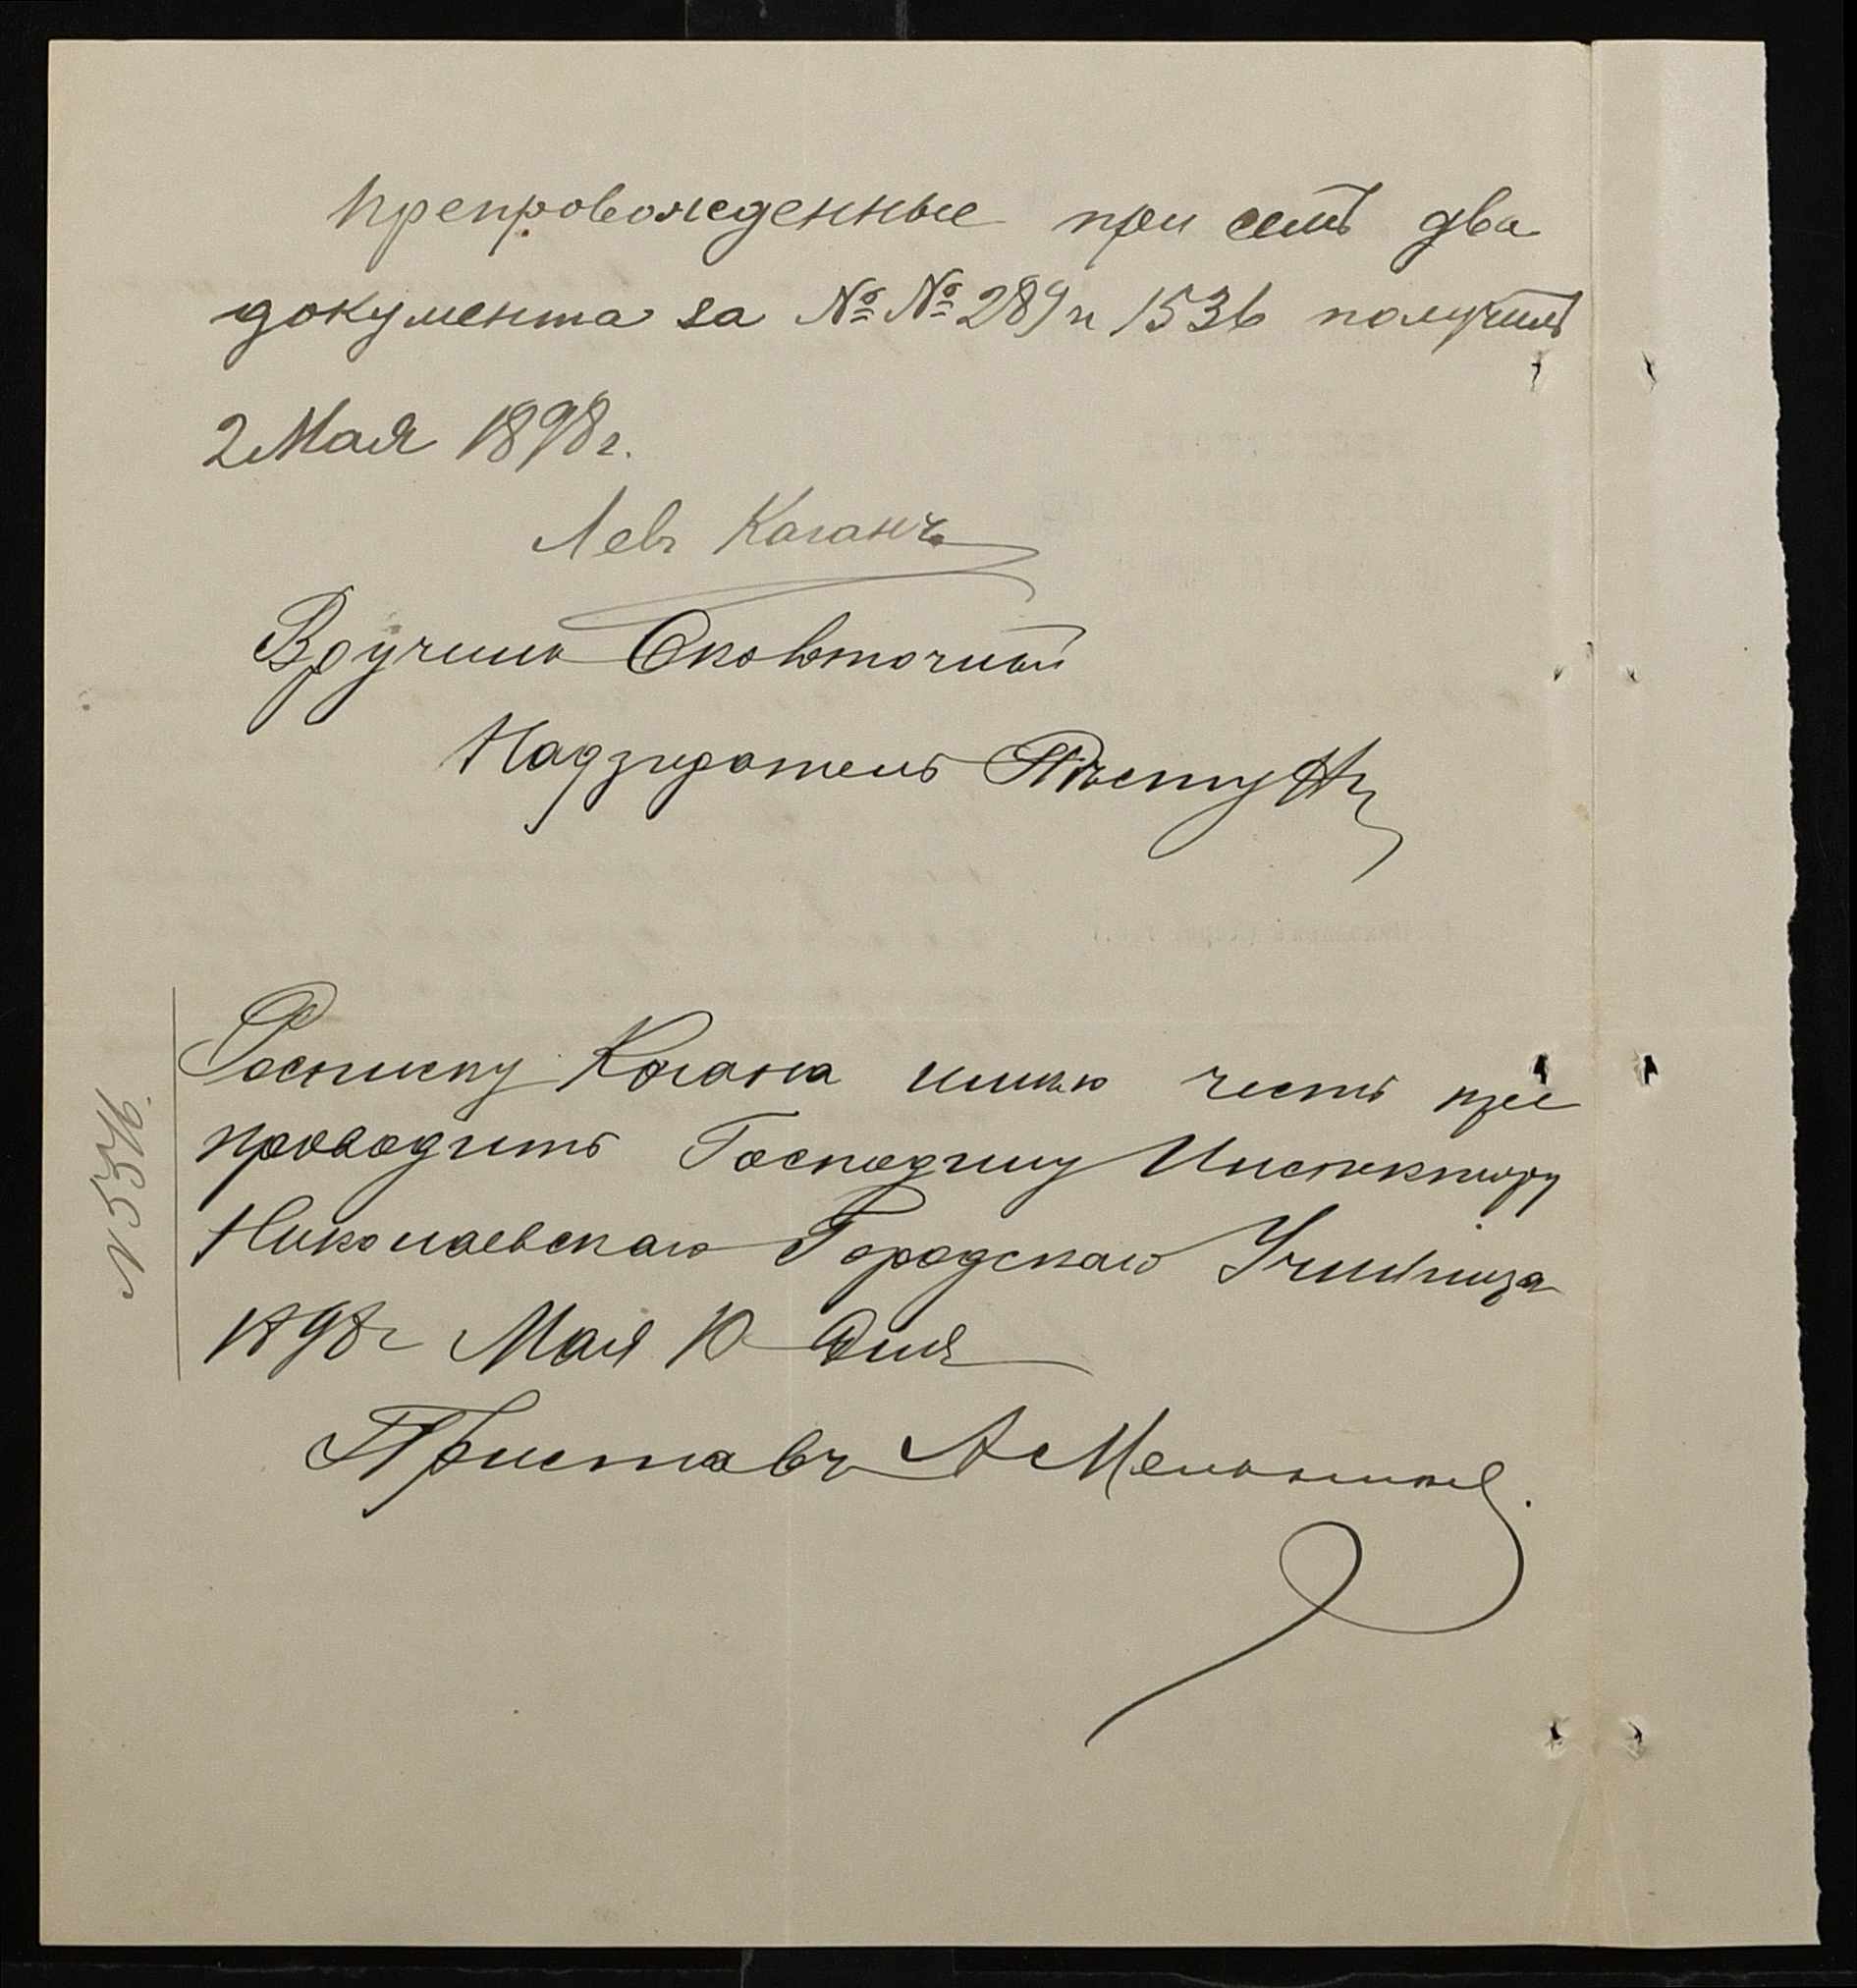 Препровожденные при семъ два
документа за №№ 289 и 1536 получилъ
2 Мая 1898 г.
Левъ Каганъ
Вручилъ Околоточный
Надзиратель
Росписку Когана имѣю честь пре
проводить Господину Инспектору
Николаевскаго Городскаго Училища
1898 г Мая 10 Дня
Приставъ А Мельникъ.